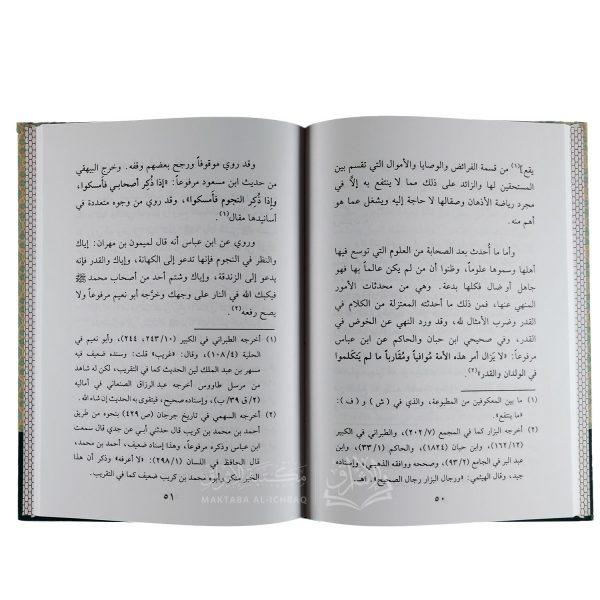 يقع](١) من قسمة الفرائض والوصايا والأموال التي تقسم بين
المستحقين لها والزائد على ذلك مما لا ينتفع به إلاَّ في
مجرد رياضة الأذهان وصقالها لا حاجة إليه ويشغل عما هو
أهم منه.
وأما ما أُحدث بعد الصحابة من العلوم التي توسع فيها
أهلها وسموها علوماً، وظنوا أن من لم يكن عالماً بها فهو
جاهل أو ضال فكلها بدعة. وهي من محدثات الأمور
المنهي عنها، فمن ذلك ما أحدثته المعتزلة من الكلام في
القدر وضرب الأمثال لله، وقد ورد النهي عن الخوض في
القدر، وفي صحيحي ابن حبان والحاكم عن ابن عباس
مرفوعاً: «لا يزال أمر هذه الأمة مُوافياً ومُقارباً ما لم يتكلموا
في الولدان والقدر»(٢).
(١) ما بين المعكوفين من المطبوعة، والذي في (ش) و (ف):
«ما ينتفع».
(٢) أخرجه البزار كما في المجمع (٢٠٢/٧)، والطبراني في الكبير
(١٦٢/١٢)، وابن حبان (١٨٢٤)، والحاكم (٣٣/١)، وابن
عبد البر في الجامع (٩٣/٢)، وصححه ووافقه الذهبي، وإسناده
جيد، وقال الهيثمي: «ورجال البزار رجال الصحيح». اهـ.
٥٠
وقد روي موقوفاً ورجح بعضهم وقفه. وخرج البيهقي
من حديث ابن مسعود مرفوعاً: «إذا ذُكِر أصحابي فأمسكوا،
وإذا ذُكِر النجوم فأمسكوا»، وقد روي من وجوه متعددة في
أسانيدها مقال(١).
وروي عن ابن عباس أنه قال لميمون بن مهران: إياك
والنظر في النجوم فإنها تدعو إلى الكهانة، وإياك والقدر فإنه
يدعو إلى الزندقة، وإياك وشتم أحد من أصحاب محمد ﷺ
فيكبك الله في النار على وجهك وخرَّجه أبو نعيم مرفوعاً ولا
يصح رفعه(٢).
(١) أخرجه الطبراني في الكبير (٢٤٣/١٠، ٢٤٤)، وأبو نعيم في
الحلية (١٠٨/٤)، وقال: «غريب» قلت: وسنده ضعيف فيه
مسهر بن عبد الملك لين الحديث كما في التقريب. لكن له شاهد
من مرسل طاووس أخرجه عبد الرزاق الصنعاني في أماليه
(٢/ق ٣٩/ب)، وإسناده صحيح، فيتقوى به الحديث إن شاء الله.
(٢) أخرجه السهمي في تاريخ جرجان (ص ٤٢٩) بنحوه من طريق
أحمد بن محمد بن كريب قال حدثني أبي عن جدي قال سمعت
ابن عباس وذكره مرفوعاً، وهذا إسناد ضعيف، أحمد بن محمد،
قال الحافظ في اللسان (٢٩٨/١): «لا أعرفه» وذكر أن هذا
الخبر منكر. وأبوه محمد بن كريب ضعيف كما في التقريب.
٥١
MAKTABA AL-ICHRAQ